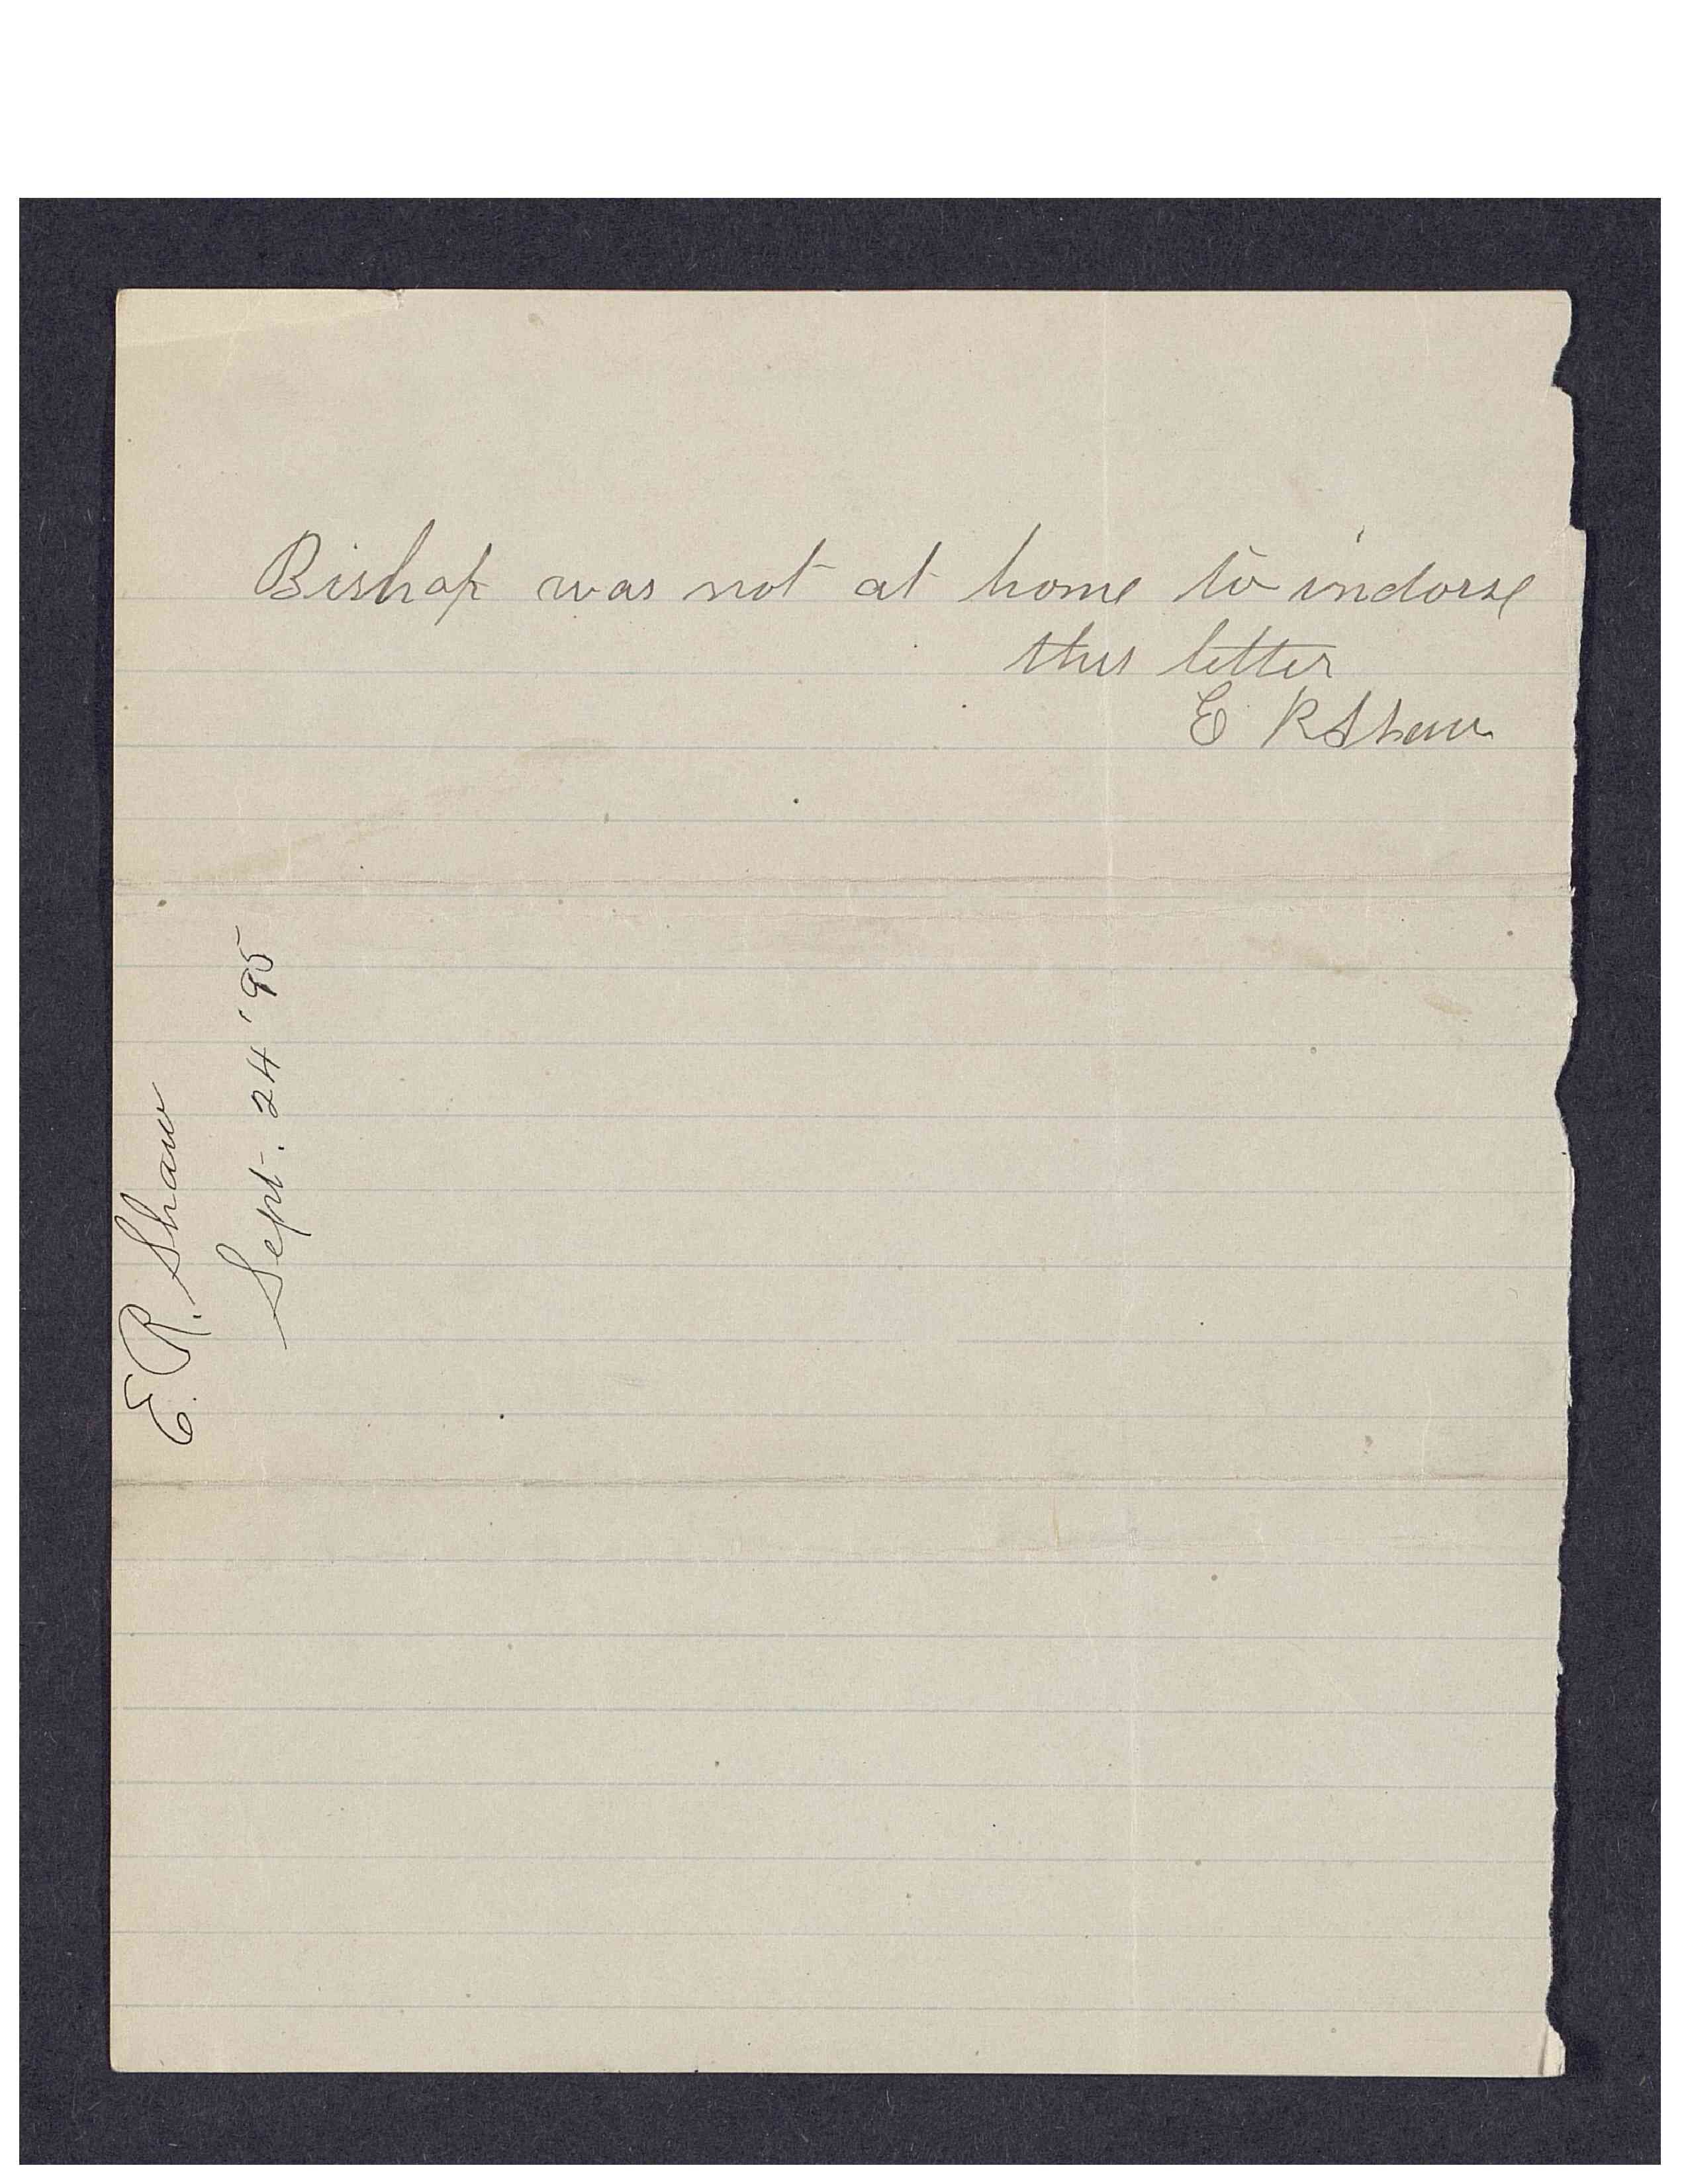 Bishop was not at home to indorse
this letter
E R Shaw
E. R. Shaw
Sept. 24 '95